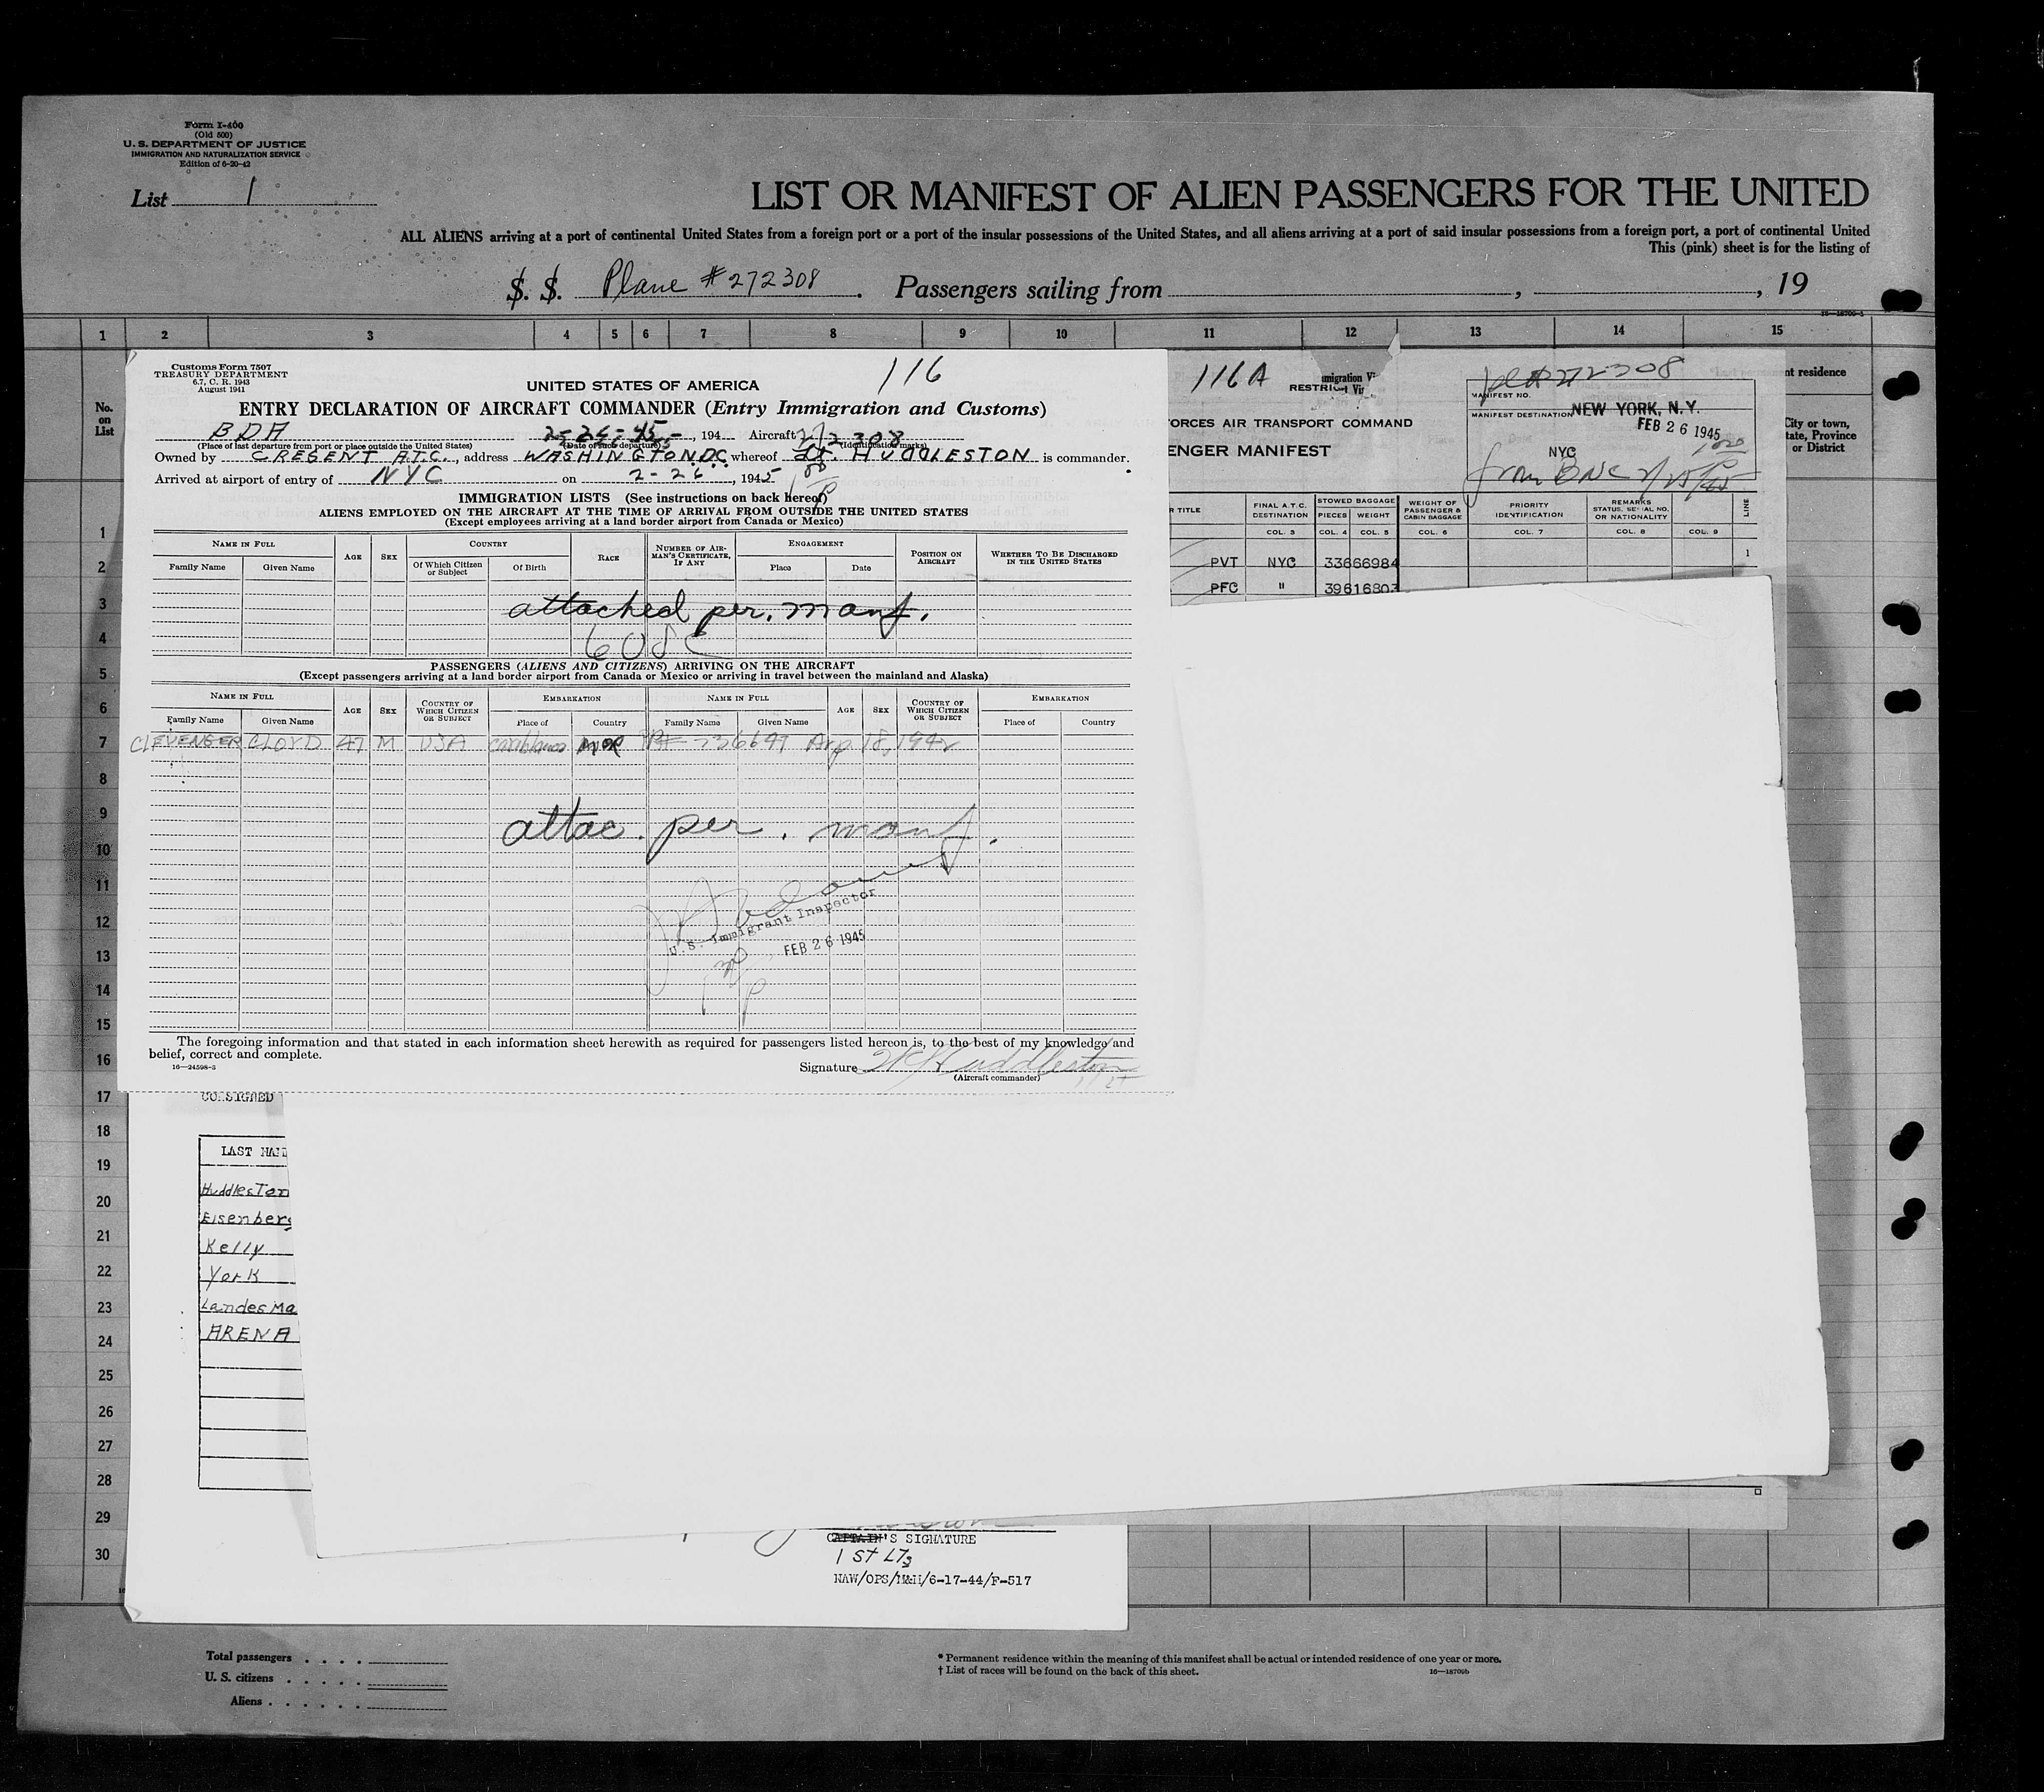 Form I-400
(Old 500)
U. S. DEPARTMENT OF JUSTICE
IMMIGRATION AND NATURALIZATION SERVICE
Edition of 6-20-42
List 1
LIST OR MANIFEST OF ALIEN PASSENGERS FOR THE UNITED
ALL ALIENS arriving at a port of continental United States from a foreign port or a port of the insular possessions of the United States, and all aliens arriving at a port of said insular possessions from a foreign port, a port of continental United
This (pink) sheet is for the listing of
S. S. Plane #272308. Passengers sailing from , , 19
1 2 3 4 5 6 7 8 9 10 11 12 13 14 15
No. on List
nt residence
City or town,
tate, Province
or District
Customs Form 7507
TREASURY DEPARTMENT
6.7, C. R. 1943
August 1941
116
UNITED STATES OF AMERICA
ENTRY DECLARATION OF AIRCRAFT COMMANDER (Entry Immigration and Customs)
BDA 2-24-45, 194 Aircraft 272308
(Place of last departure from port or place outside the United States) (Date of such departure) (Identification marks)
Owned by CRESENT A.T.C., address WASHINGTON, DC whereof Lt. HUDDLESTON is commander.
Arrived at airport of entry of NYC on 2-26, 1945
IMMIGRATION LISTS (See instructions on back hereof)
ALIENS EMPLOYED ON THE AIRCRAFT AT THE TIME OF ARRIVAL FROM OUTSIDE THE UNITED STATES
(Except employees arriving at a land border airport from Canada or Mexico)
NAME IN FULL AGE SEX COUNTRY RACE NUMBER OF AIRMAN'S CERTIFICATE, IF ANY ENGAGEMENT POSITION ON AIRCRAFT WHETHER TO BE DISCHARGED IN THE UNITED STATES
Family Name Given Name Of Which Citizen or Subject Of Birth Place Date
attached per. manf.
608
PASSENGERS (ALIENS AND CITIZENS) ARRIVING ON THE AIRCRAFT
(Except passengers arriving at a land border airport from Canada or Mexico or arriving in travel between the mainland and Alaska)
NAME IN FULL AGE SEX COUNTRY OF WHICH CITIZEN OR SUBJECT EMBARKATION NAME IN FULL AGE SEX COUNTRY OF WHICH CITIZEN OR SUBJECT EMBARKATION
Family Name Given Name Place of Country Family Name Given Name Place of Country
CLEVENGER CLOYD 47 M USA Casablanca MOR 18, 1942
attac. per. manf.
U.S. Immigrant Inspector
FEB 26 1945
The foregoing information and that stated in each information sheet herewith as required for passengers listed hereon is, to the best of my knowledge and
belief, correct and complete.
16—24598-3
Signature Huddleston
(Aircraft commander)
1 LT
116A
RESTRI
ORCES AIR TRANSPORT COMMAND
ENGER MANIFEST
272308
MANIFEST NO.
MANIFEST DESTINATION NEW YORK, N.Y.
FEB 26 1945
NYC
R TITLE FINAL A.T.C. DESTINATION STOWED BAGGAGE PIECES WEIGHT WEIGHT OF PASSENGER & CABIN BAGGAGE PRIORITY IDENTIFICATION REMARKS STATUS, SERIAL NO. OR NATIONALITY LINE
COL. 3 COL. 4 COL. 5 COL. 6 COL. 7 COL. 8 COL. 9
PVT NYC 33666984 1
PFC " 39616803
1
2
3
4
5
6
7
8
9
10
11
12
13
14
15
16
17
18
19
20
21
22
23
24
25
26
27
28
29
30
CONSIGNED
LAST NAM
Huddleston
Eisenberg
Kelly
York
Landesma
ARENA
CAPTAIN'S SIGNATURE
1 ST LT
NAW/OPS/M&H/6-17-44/F-517
Total passengers
U. S. citizens
Aliens
* Permanent residence within the meaning of this manifest shall be actual or intended residence of one year or more.
† List of races will be found on the back of this sheet.
16—18709b